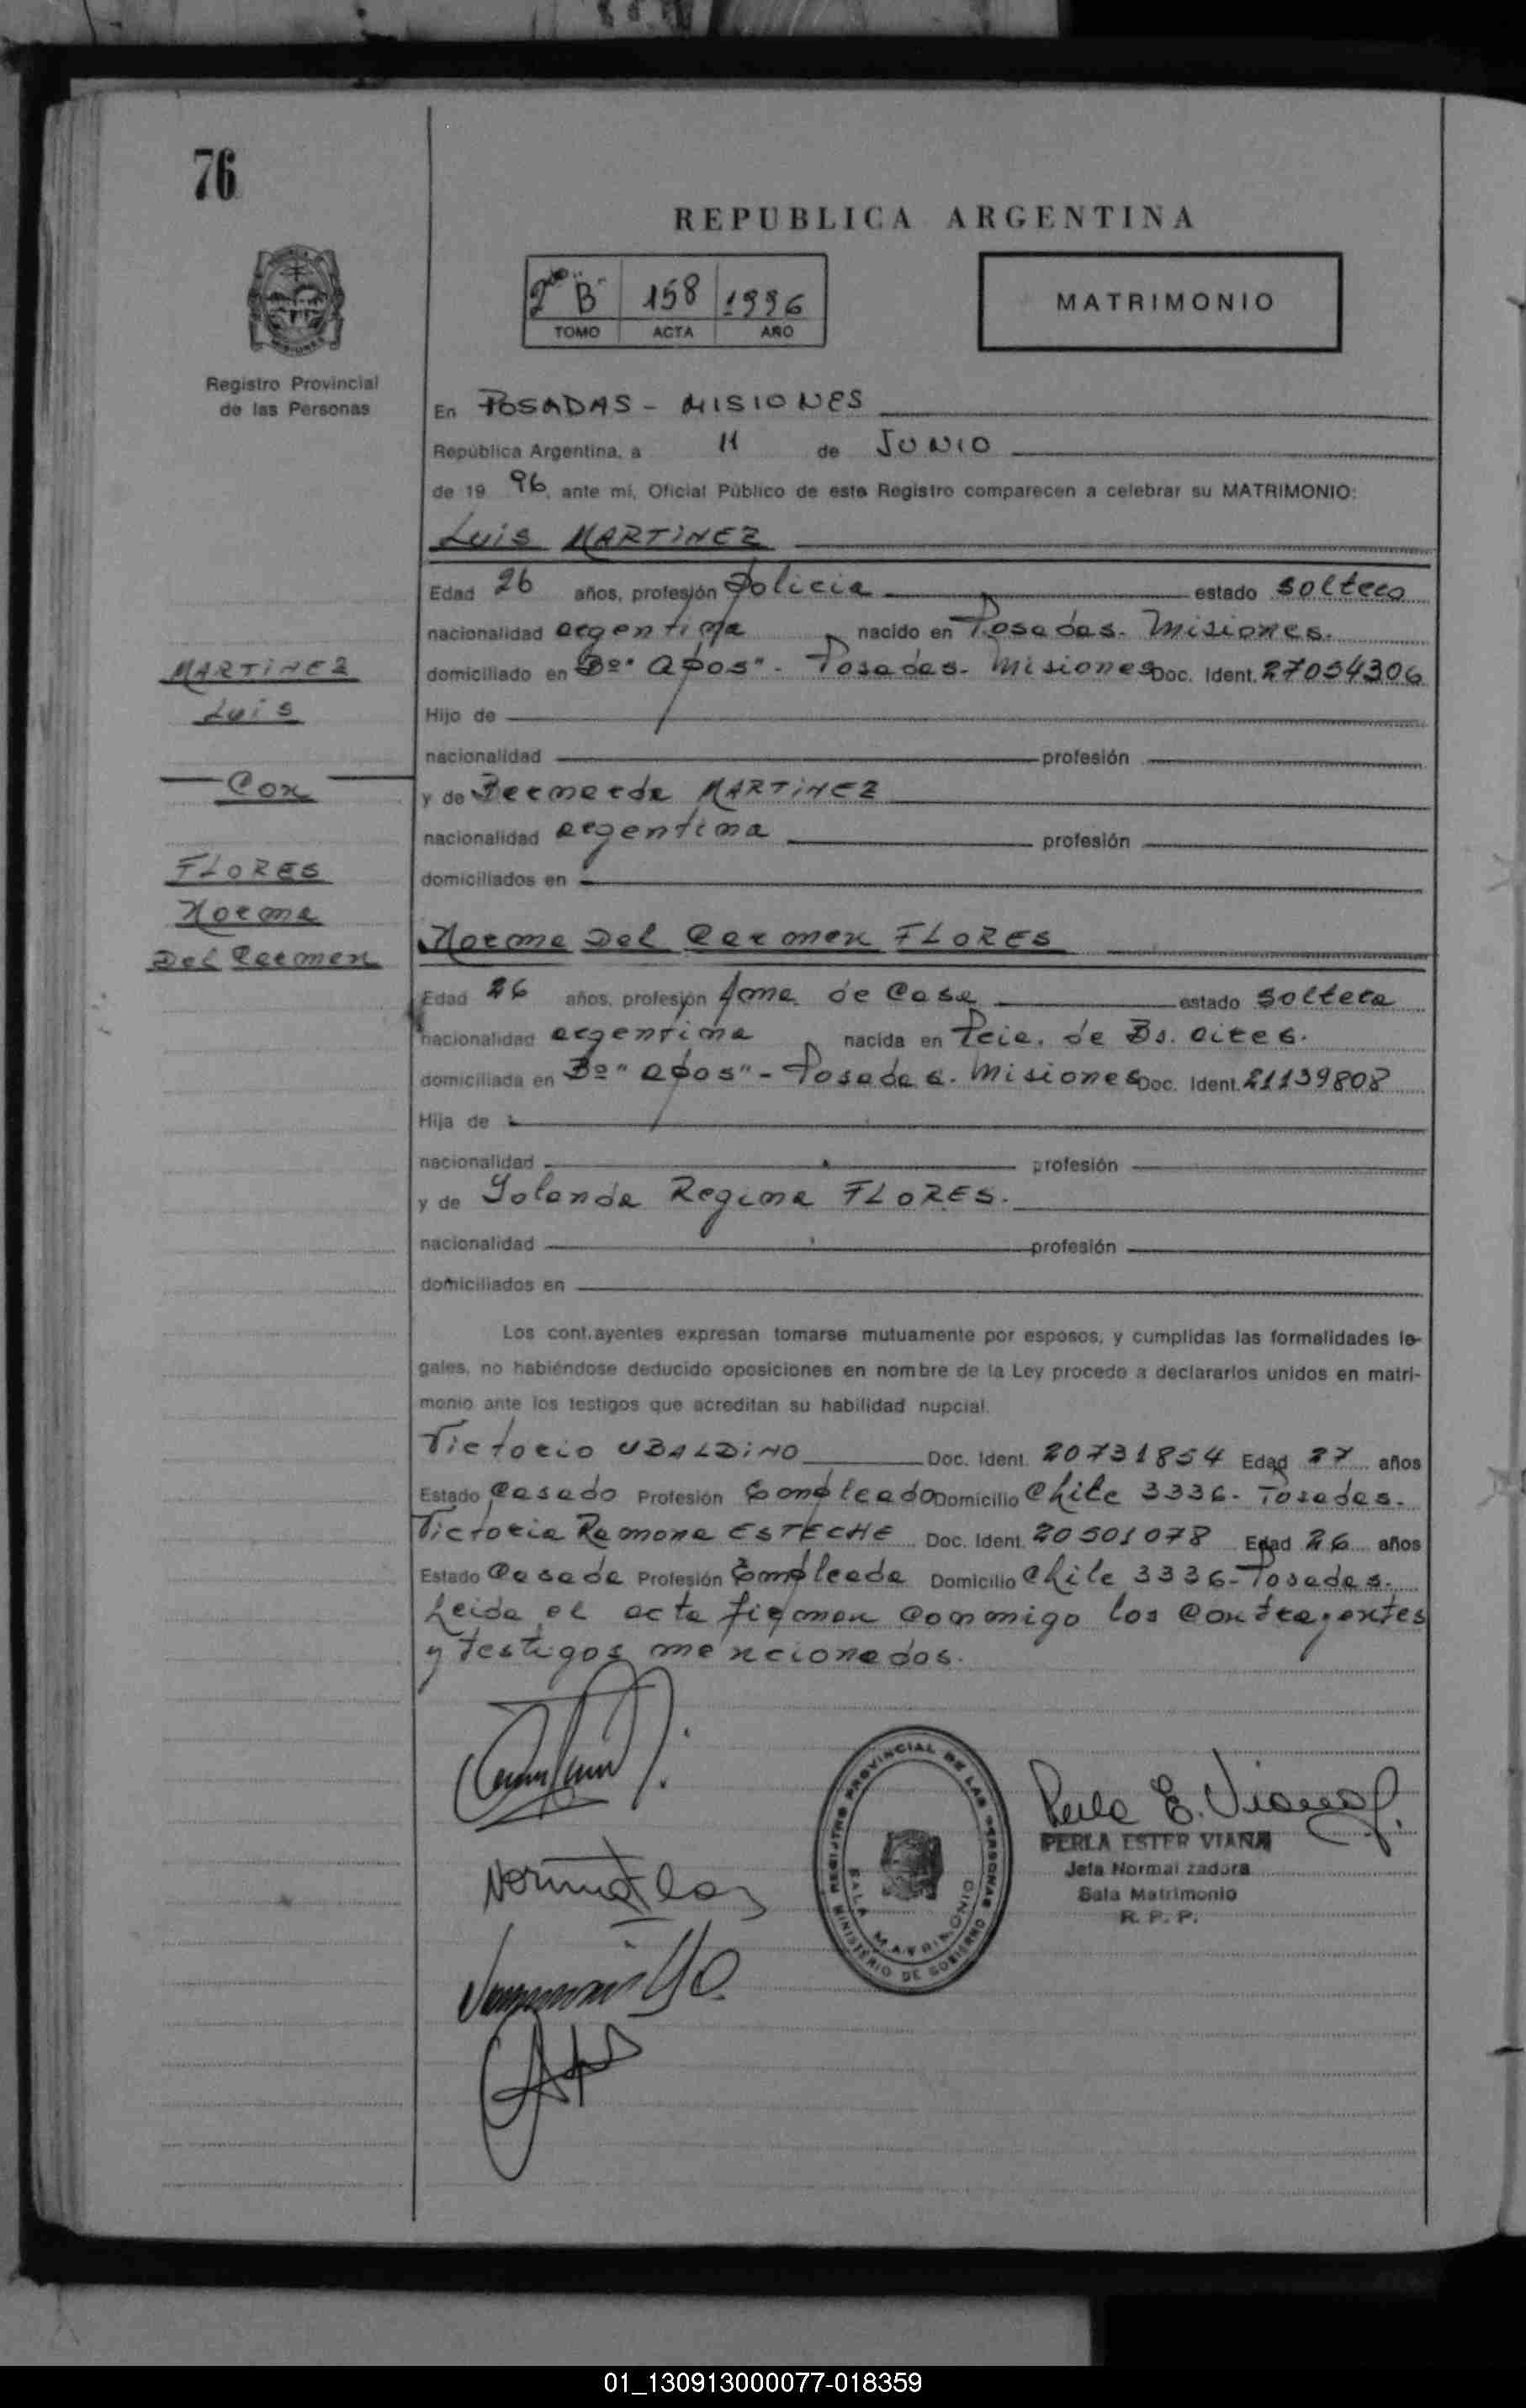 76
REPUBLICA ARGENTINA
2do "B" 158 1996
TOMO ACTA AÑO
MATRIMONIO
Registro Provincial
de las Personas
En POSADAS - MISIONES
República Argentina, a 11 de JUNIO
de 19 96, ante mí, Oficial Público de este Registro comparecen a celebrar su MATRIMONIO:
Luis MARTINEZ
Edad 26 años, profesión Policia estado soltero
nacionalidad argentina nacido en Posadas. Misiones.
domiciliado en Bº "Apos" - Posadas. Misiones Doc. Ident. 27054306
Hijo de
nacionalidad profesión
y de Bernarda MARTINEZ
nacionalidad argentina profesión
domiciliados en
MARTINEZ
Luis
Con
FLORES
Norma
Del Carmen
Norma Del Carmen FLORES
Edad 26 años, profesión Ama de Casa estado soltera
nacionalidad argentina nacida en Pcia. de Bs. Aires.
domiciliada en Bº "Apos" - Posadas. Misiones Doc. Ident. 21139808
Hija de
nacionalidad profesión
y de Yolanda Regina FLORES.
nacionalidad profesión
domiciliados en
Los cont.ayentes expresan tomarse mutuamente por esposos, y cumplidas las formalidades le-
gales, no habiéndose deducido oposiciones en nombre de la Ley procedo a declararlos unidos en matri-
monio ante los testigos que acreditan su habilidad nupcial.
Victorio UBALDINO Doc. Ident. 20731854 Edad 27 años
Estado Casado Profesión Empleado Domicilio Chile 3336 - Posadas.
Victoria Ramona ESTECHE Doc. Ident. 20501078 Edad 26 años
Estado Casada Profesión Empleada Domicilio Chile 3336 - Posadas.
Leida el acta firman conmigo los contrayentes
y testigos mencionados.
REGISTRO PROVINCIAL DE LAS PERSONAS
SALA MATRIMONIO
MINISTERIO DE GOBIERNO
Perla E. Viana
PERLA ESTER VIANA
Jefa Normalizadora
Sala Matrimonio
R. P. P.
Norma Flores
01_130913000077-018359